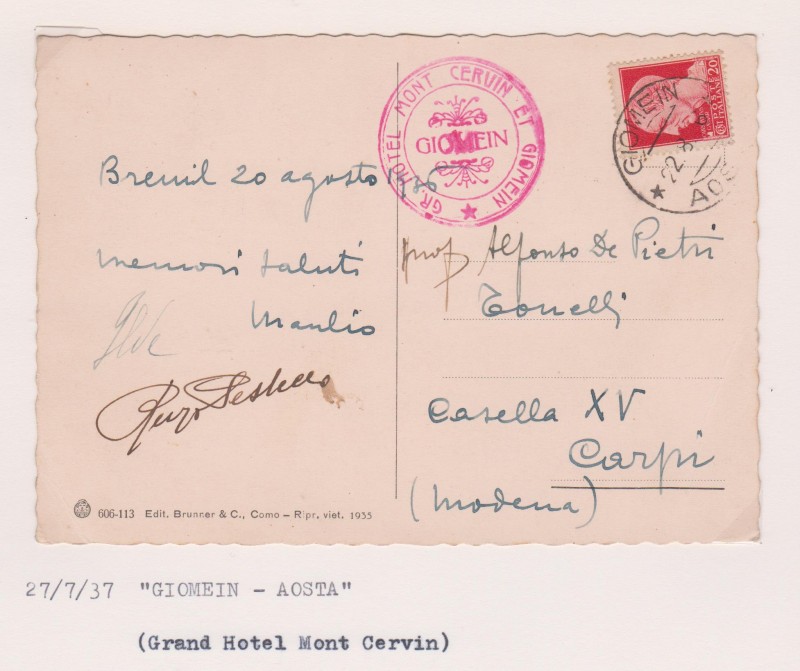 GR. HOTEL MONT CERVIN ET GIOMEIN
GIOMEIN
POSTE ITALIANE
20
GIOMEIN
22
AOS
Breuil 20 agosto 1936
memori saluti
Manlio
prof Alfonso De Pietri
Tonelli
Casella XV
Carpi
(Modena)
606-113 Edit. Brunner & C., Como - Ripr. viet. 1935
27/7/37 "GIOMEIN - AOSTA"
(Grand Hotel Mont Cervin)